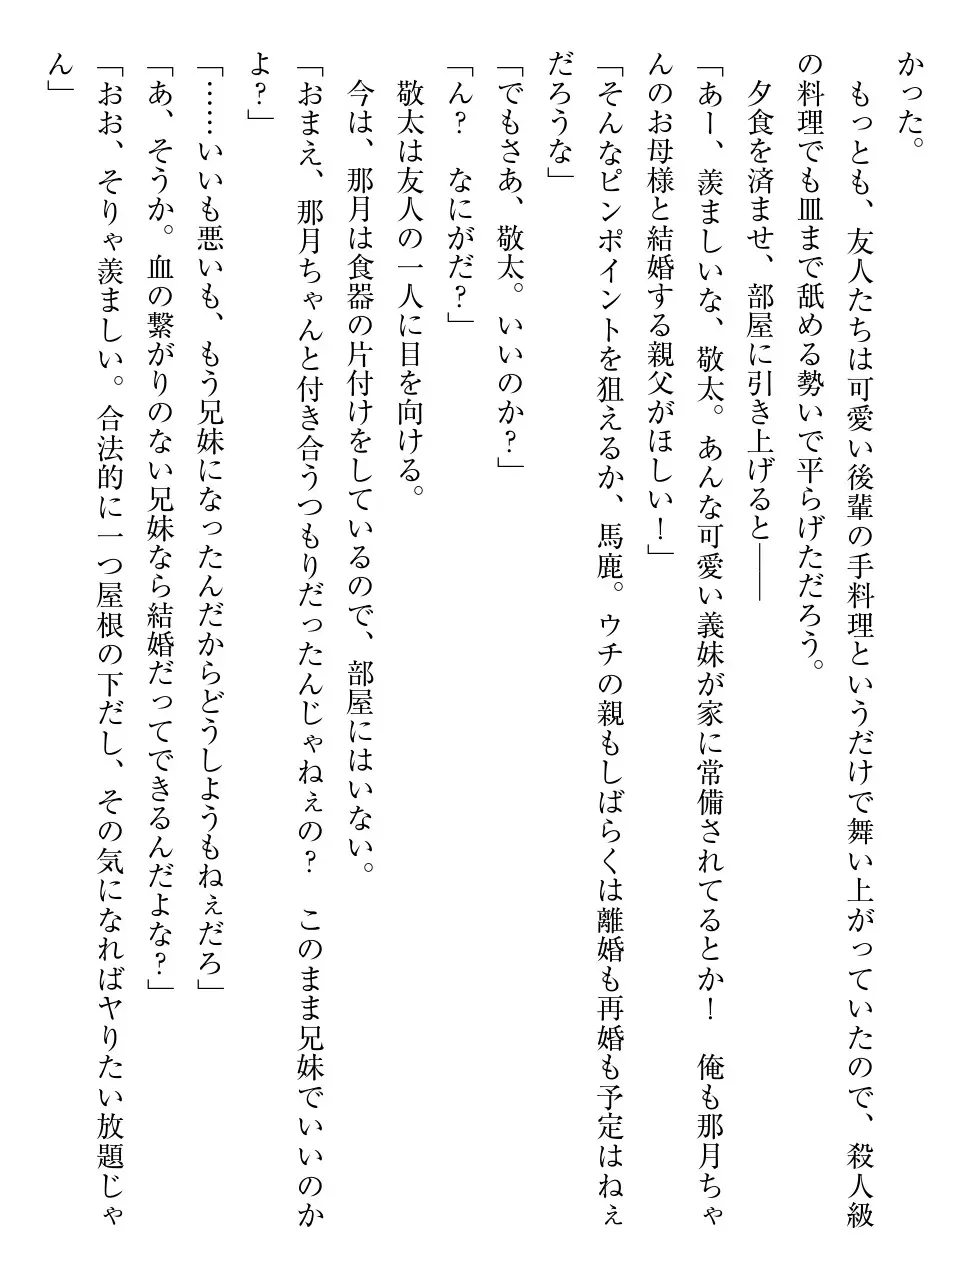 かった。
　もっとも、友人たちは可愛い後輩の手料理というだけで舞い上がっていたので、殺人級
の料理でも皿まで舐める勢いで平らげただろう。
　夕食を済ませ、部屋に引き上げると――
「あー、羨ましいな、敬太。あんな可愛い義妹が家に常備されてるとか！　俺も那月ちゃ
んのお母様と結婚する親父がほしい！」
「そんなピンポイントを狙えるか、馬鹿。ウチの親もしばらくは離婚も再婚も予定はねぇ
だろうな」
「でもさあ、敬太。いいのか？」
「ん？　なにがだ？」
　敬太は友人の一人に目を向ける。
　今は、那月は食器の片付けをしているので、部屋にはいない。
「おまえ、那月ちゃんと付き合うつもりだったんじゃねぇの？　このまま兄妹でいいのか
よ？」
「……いいも悪いも、もう兄妹になったんだからどうしようもねぇだろ」
「あ、そうか。血の繋がりのない兄妹なら結婚だってできるんだよな？」
「おお、そりゃ羨ましい。合法的に一つ屋根の下だし、その気になればヤりたい放題じゃ
ん」